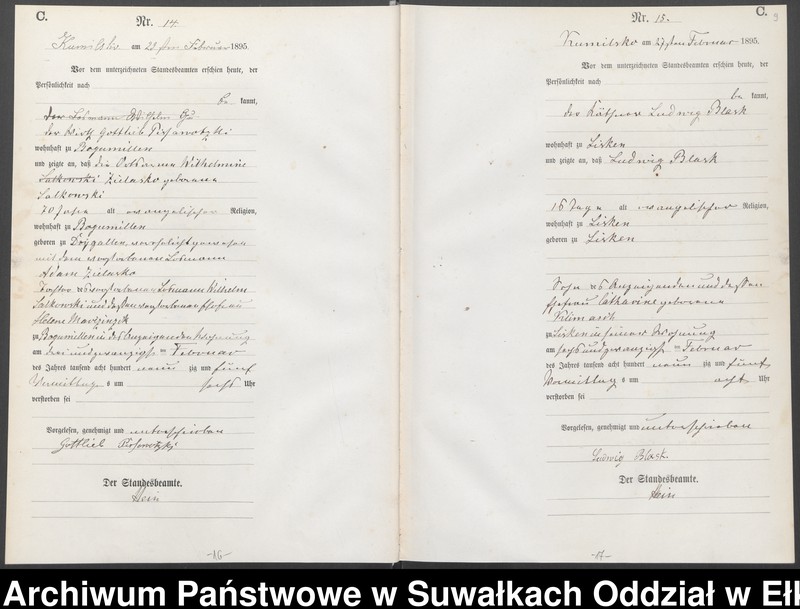 C.
Nr. 14.
Kumilsko am 23ten Februar 1895.
Vor dem unterzeichneten Standesbeamten erschien heute, der
Persönlichkeit nach
be kannt,
der Losmann Wilhelm
der Wirth Gottlieb
wohnhaft zu Bogumillen
und zeigte an, daß die Wilhelmine
Salkowski Zielasko geborene
Salkowski
70 Jahre alt evangelischer Religion,
wohnhaft zu Bogumillen
geboren zu Drygallen verehelicht gewesen
mit dem verstorbenen Losmann
Adam Zielasko
Tochter des verstorbenen Losmann Wilhelm
Salkowski und dessen verstorbenen Ehefrau
Helene
zu Bogumillen in des Anzeigenden Wohnung
am drei und zwanzigsten Februar
des Jahres tausend acht hundert neun zig und fünf
Vormittags um sechs Uhr
verstorben sei
Vorgelesen, genehmigt und unterschrieben
Gottlieb
Der Standesbeamte.
Hein
-16-
C.
9
Nr. 15.
Kumilsko am 27ten Februar 1895.
Vor dem unterzeichneten Standesbeamten erschien heute, der
Persönlichkeit nach
be kannt,
der Käthner Ludwig Blask
wohnhaft zu Lisken
und zeigte an, daß Ludwig Blask
16 Tage alt evangelischer Religion,
wohnhaft zu Lisken
geboren zu Lisken
Sohn des Anzeigenden und dessen
Ehefrau Catharine geborene
Klimasch
zu Lisken in seiner Wohnung
am sechs und zwanzigsten Februar
des Jahres tausend acht hundert neun zig und fünf
Vormittags um acht Uhr
verstorben sei
Vorgelesen, genehmigt und unterschrieben
Ludwig Blask
Der Standesbeamte.
Hein
-17-
Archiwum Państwowe w Suwałkach Oddział w Eł